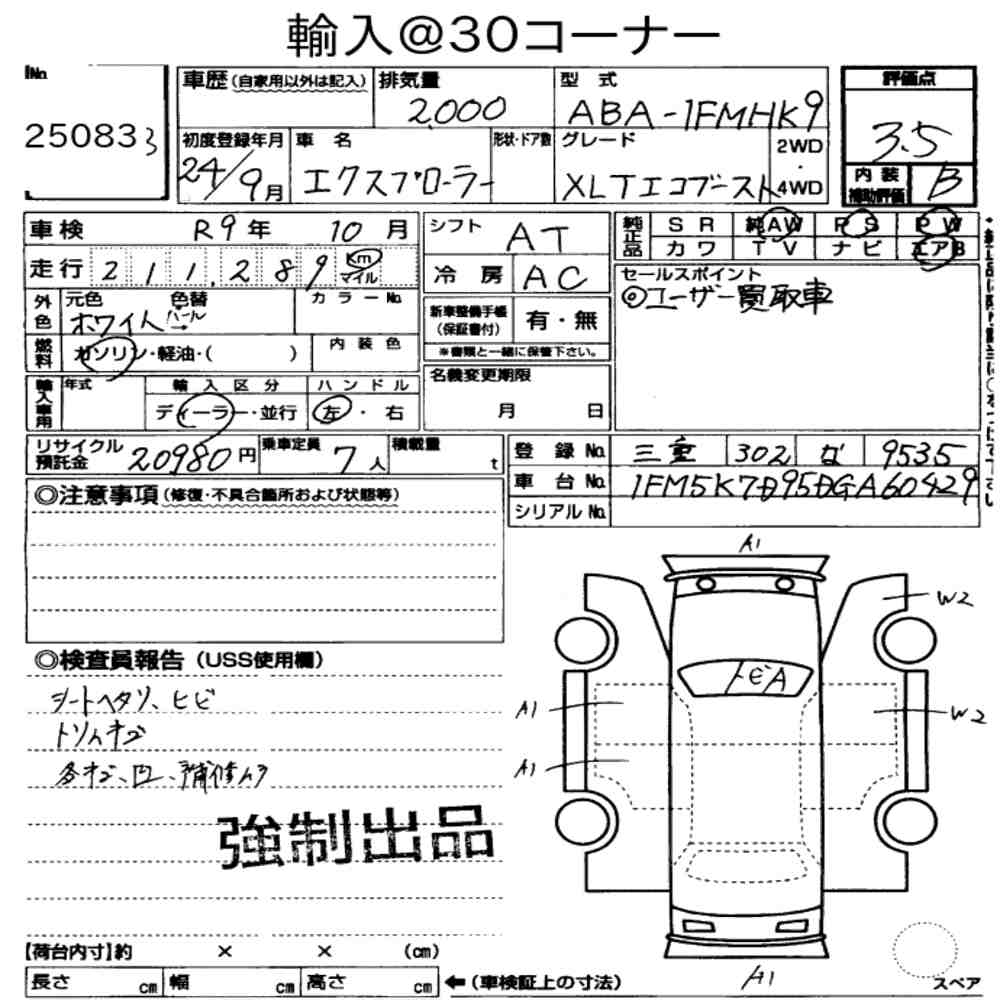 輸入@30コーナー
No.
250833
車歴(自家用以外は記入)
排気量
2,000
型式
ABA-1FMHK9
評価点
3.5
初度登録年月
24/9月
車名
エクスプローラー
形状・ドア数
グレード
XLTエコブースト
2WD
・
4WD
内装
補助評価
B
車検 R9年 10月
走行 211,289 Km
マイル
外色
元色
ホワイト
色替
パール
→
カラーNo.
燃料
ガソリン・軽油・( )
内装色
輸入車用
年式
輸入区分
ディーラー・並行
ハンドル
左・右
リサイクル
預託金
20980円
乗車定員
7人
積載量
t
シフト
AT
冷房
AC
新車整備手帳
(保証書付)
有・無
※書類と一緒に保管下さい。
名義変更期限
月 日
純正品
SR 純AW PS PW
カワ TV ナビ エアB
セールスポイント
◎ユーザー買取車
登録No. 三重 302 な 9535
車台No. 1FM5K7D95DGA60429
シリアルNo.
◎注意事項(修復・不具合箇所および状態等)
◎検査員報告(USS使用欄)
シートヘタリ、ヒビ
トリムキズ
各キズ、凹、補修ムラ
強制出品
A1
W2
トビA
A1
W2
A1
A1
スペア
【荷台内寸】約 × × (cm)
長さ cm 幅 cm 高さ cm
←(車検証上の寸法)